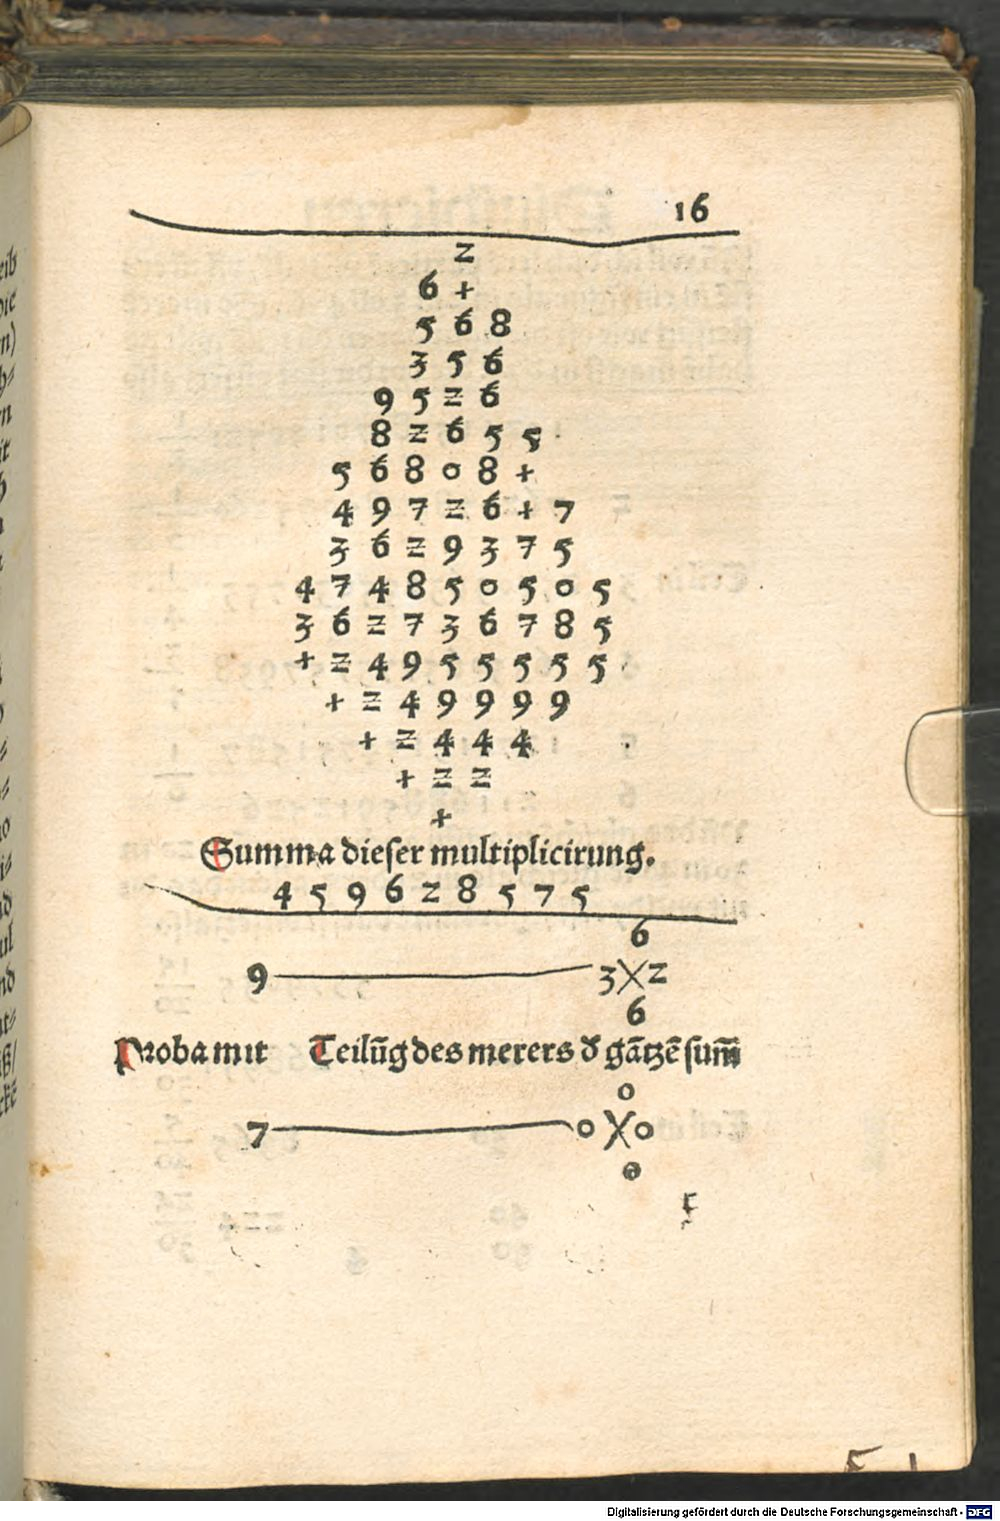 16
z
6 +
5 6 8
3 5 6
9 5 z 6
8 z 6 5 5
5 6 8 0 8 +
4 9 7 z 6 + 7
3 6 z 9 3 7 5
4 7 4 8 5 0 5 0 5
3 6 z 7 3 6 7 8 5
+ z 4 9 5 5 5 5 5
+ z 4 9 9 9 9
+ z 4 4 4
+ z z
+
Summa dieser multiplicirung.
4 5 9 6 z 8 5 7 5
6
9 3 X z
6
Proba mit Teilūg des merers d̄ gātzē sum̄
0
7 0 X 0
0
Digitalisierung gefördert durch die Deutsche Forschungsgemeinschaft - DFG